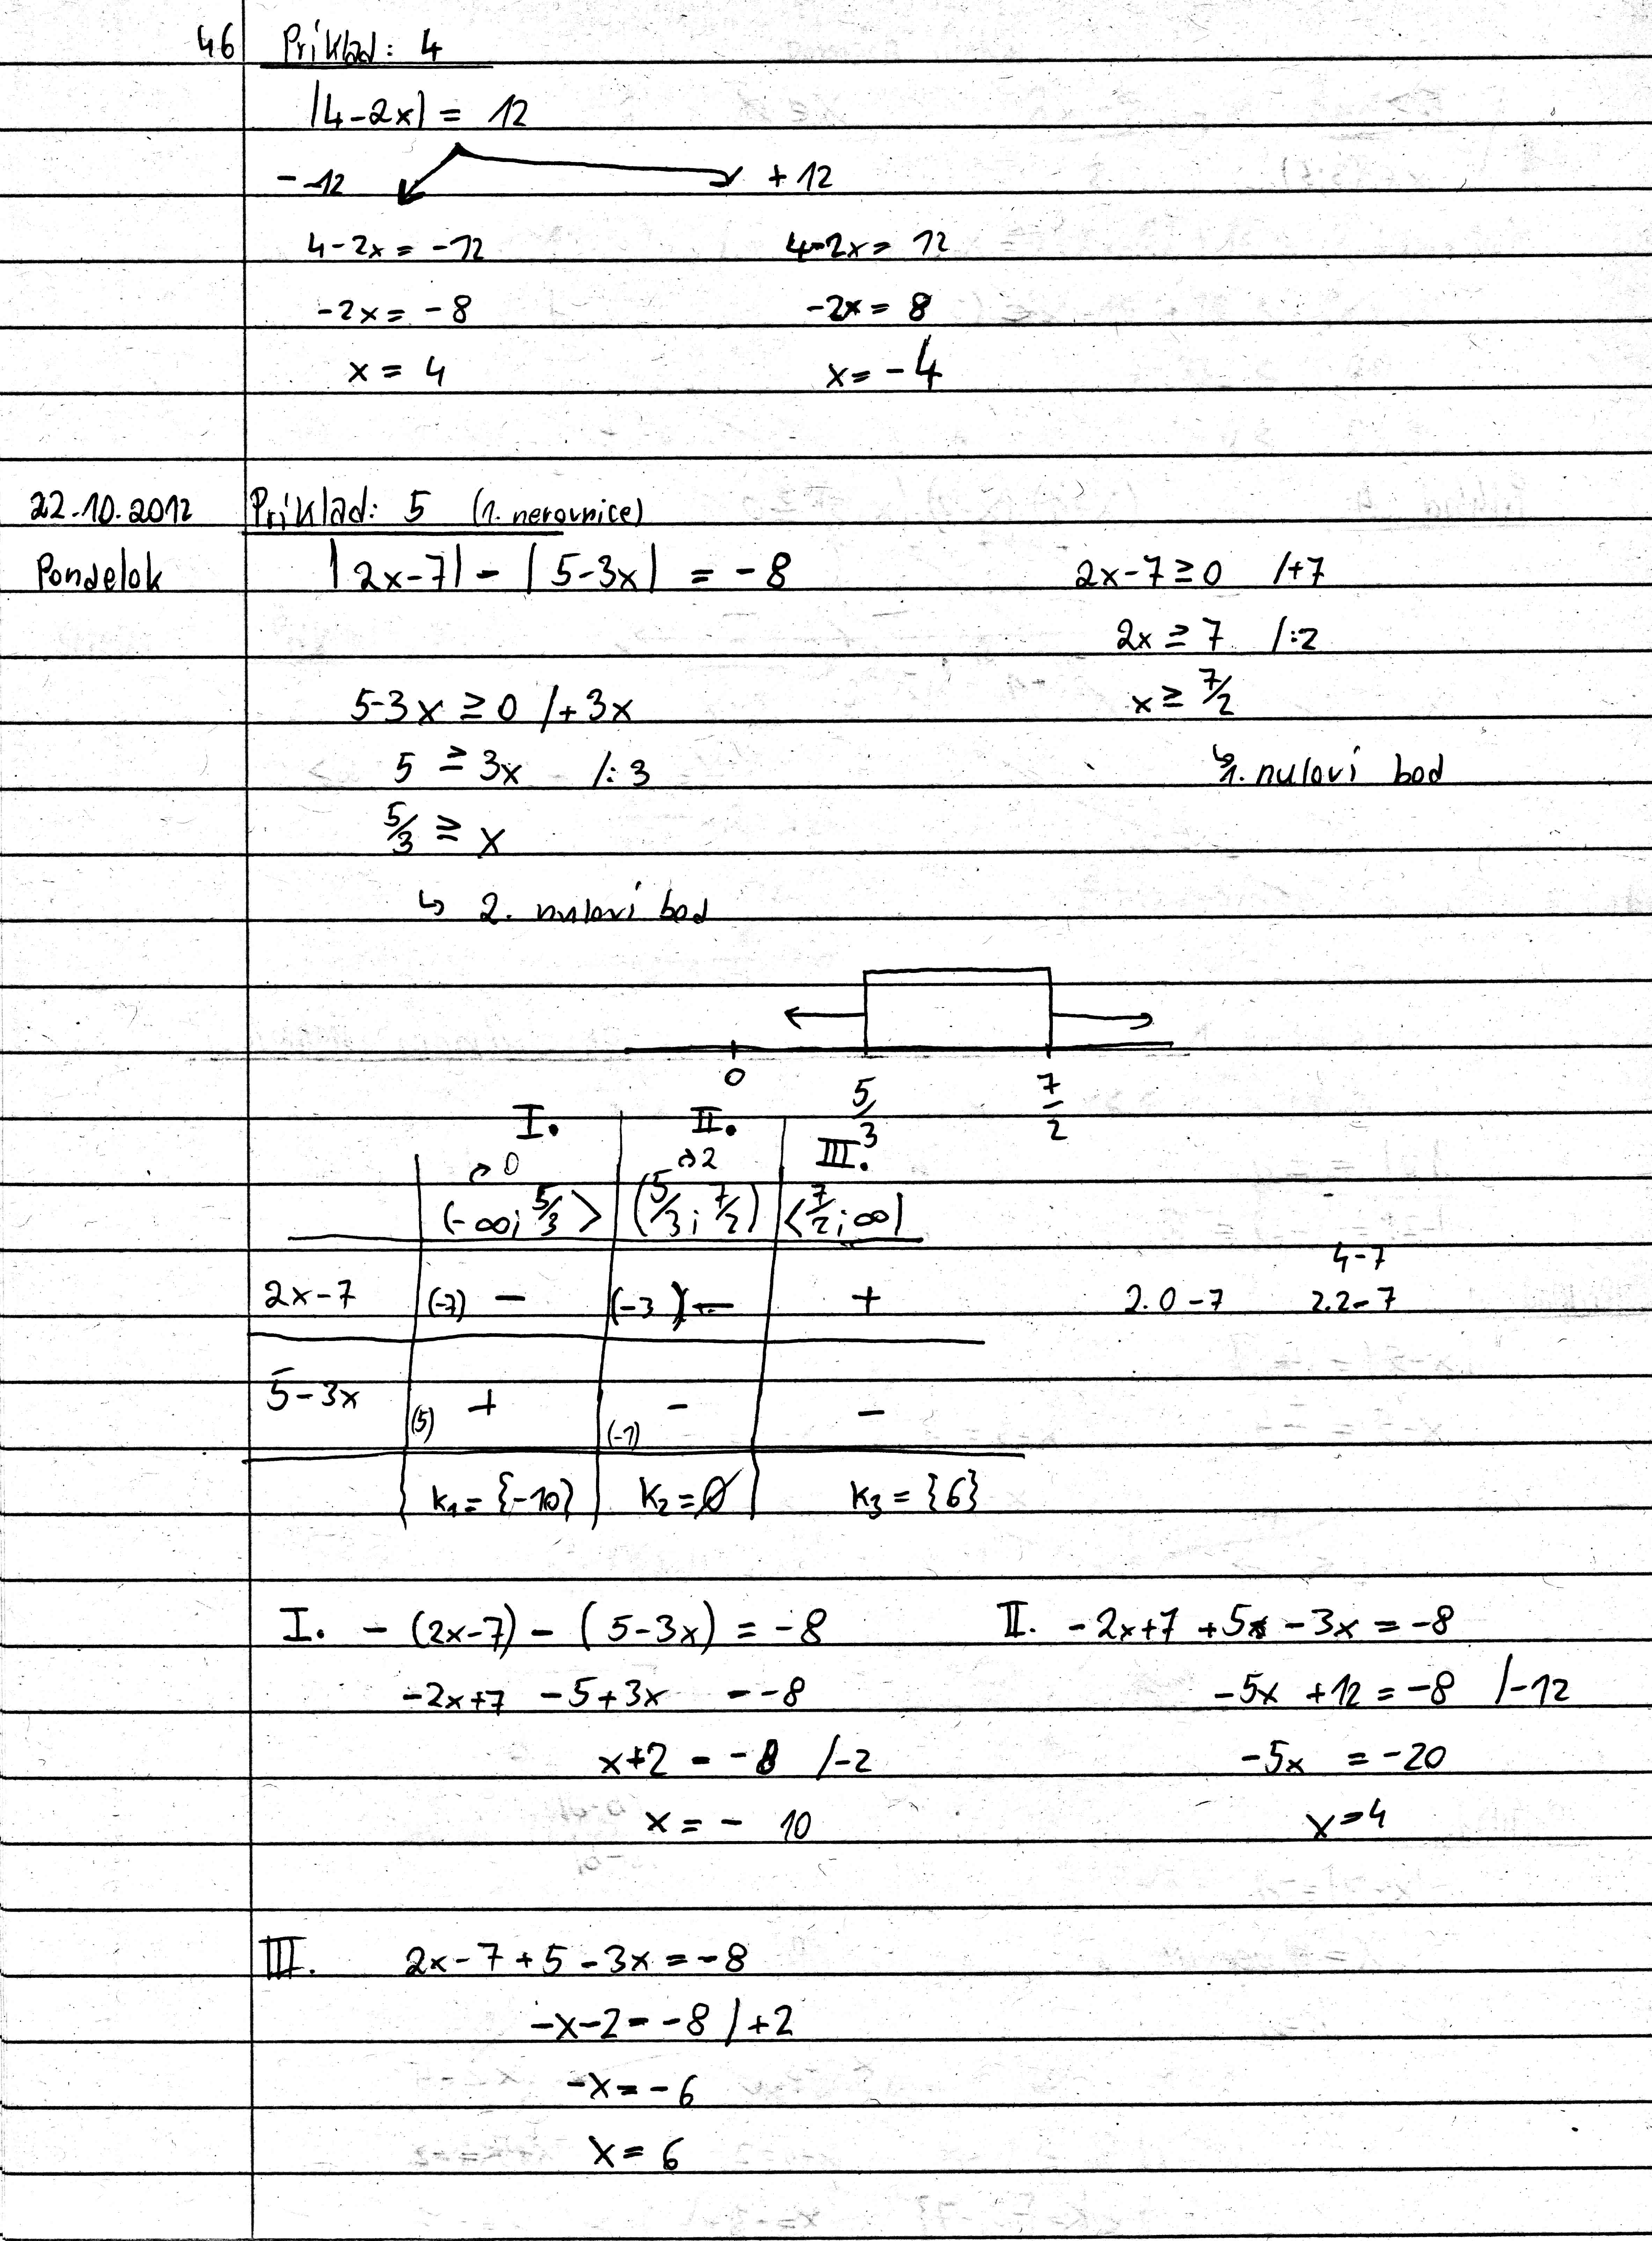 46 Príklad: 4
|4-2x| = 12
- 12 + 12
4-2x = -12 4-2x = 12
-2x = -8 -2x = 8
x = 4 x = -4
22.10.2012 Príklad: 5 (1. nerovnice)
Pondelok |2x-7| - |5-3x| = -8 2x-7 ≥ 0 /+7
2x ≥ 7 /:2
5-3x ≥ 0 /+3x x ≥ 7/2
5 ≥ 3x /:3 ↳ 1. nuloví bod
5/3 ≥ x
↳ 2. nuloví bod
0 5/3 7/2
I. II. III.
→0 →2
(-∞; 5/3> (5/3; 7/2) <7/2; ∞)
4-7
2x-7 (-7) - (-3) - + 2.0-7 2.2-7
5-3x (5) + (-1) - -
K1 = {-10} K2 = ∅ K3 = {6}
I. -(2x-7) - (5-3x) = -8 II. -2x+7 +5 -3x = -8
-2x+7 -5+3x = -8 -5x +12 = -8 /-12
x+2 = -8 /-2 -5x = -20
x = - 10 x = 4
III. 2x-7+5-3x = -8
-x-2 = -8 /+2
-x = -6
x = 6